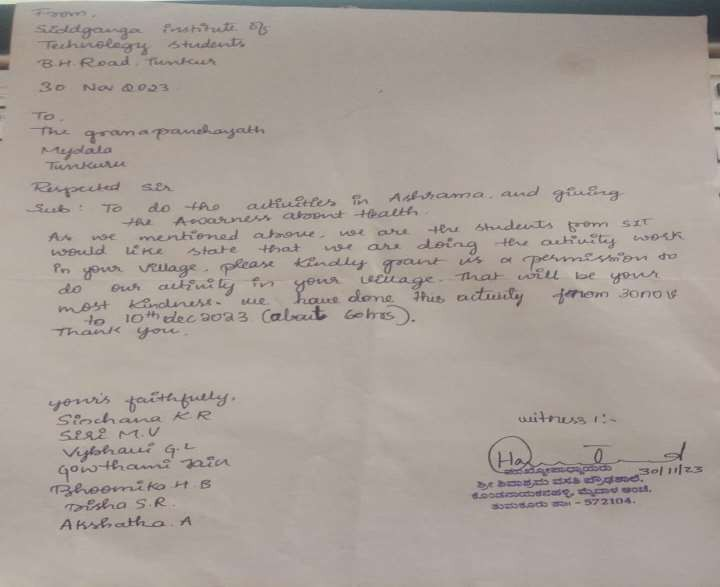 From,
Siddganga institute of
Technology students
B.H. Road, Tumkur
30 Nov 2023
To,
The gramapanchayath
Mydala
Tumkuru
Respected Sir
Sub: To do the activities in Ashrama, and giving
the Awarness about Health.
As we mentioned above, we are the students from SIT
would like state that we are doing the activity work
in your village. please kindly grant us a permission to
do our activity in your village. That will be your
most kindness. we have done this activity from 30nov
to 10th dec 2023 (about 60hrs).
Thank you.
your's faithfully,
Sinchana K.R
SIRI M.V
Vybhavi G.L
Gowthami Jain
Bhoomika H.B
Disha S.R.
Akshatha. A
witness 1:-
30/11/23
ಮುಖ್ಯೋಪಾಧ್ಯಾಯರು
ಶ್ರೀ ಶಿವಾಶ್ರಮ ವಸತಿ ಪ್ರೌಢಶಾಲೆ,
ಮೈದಾಳ ಅಂಚೆ,
ತುಮಕೂರು ತಾ॥ - 572104.